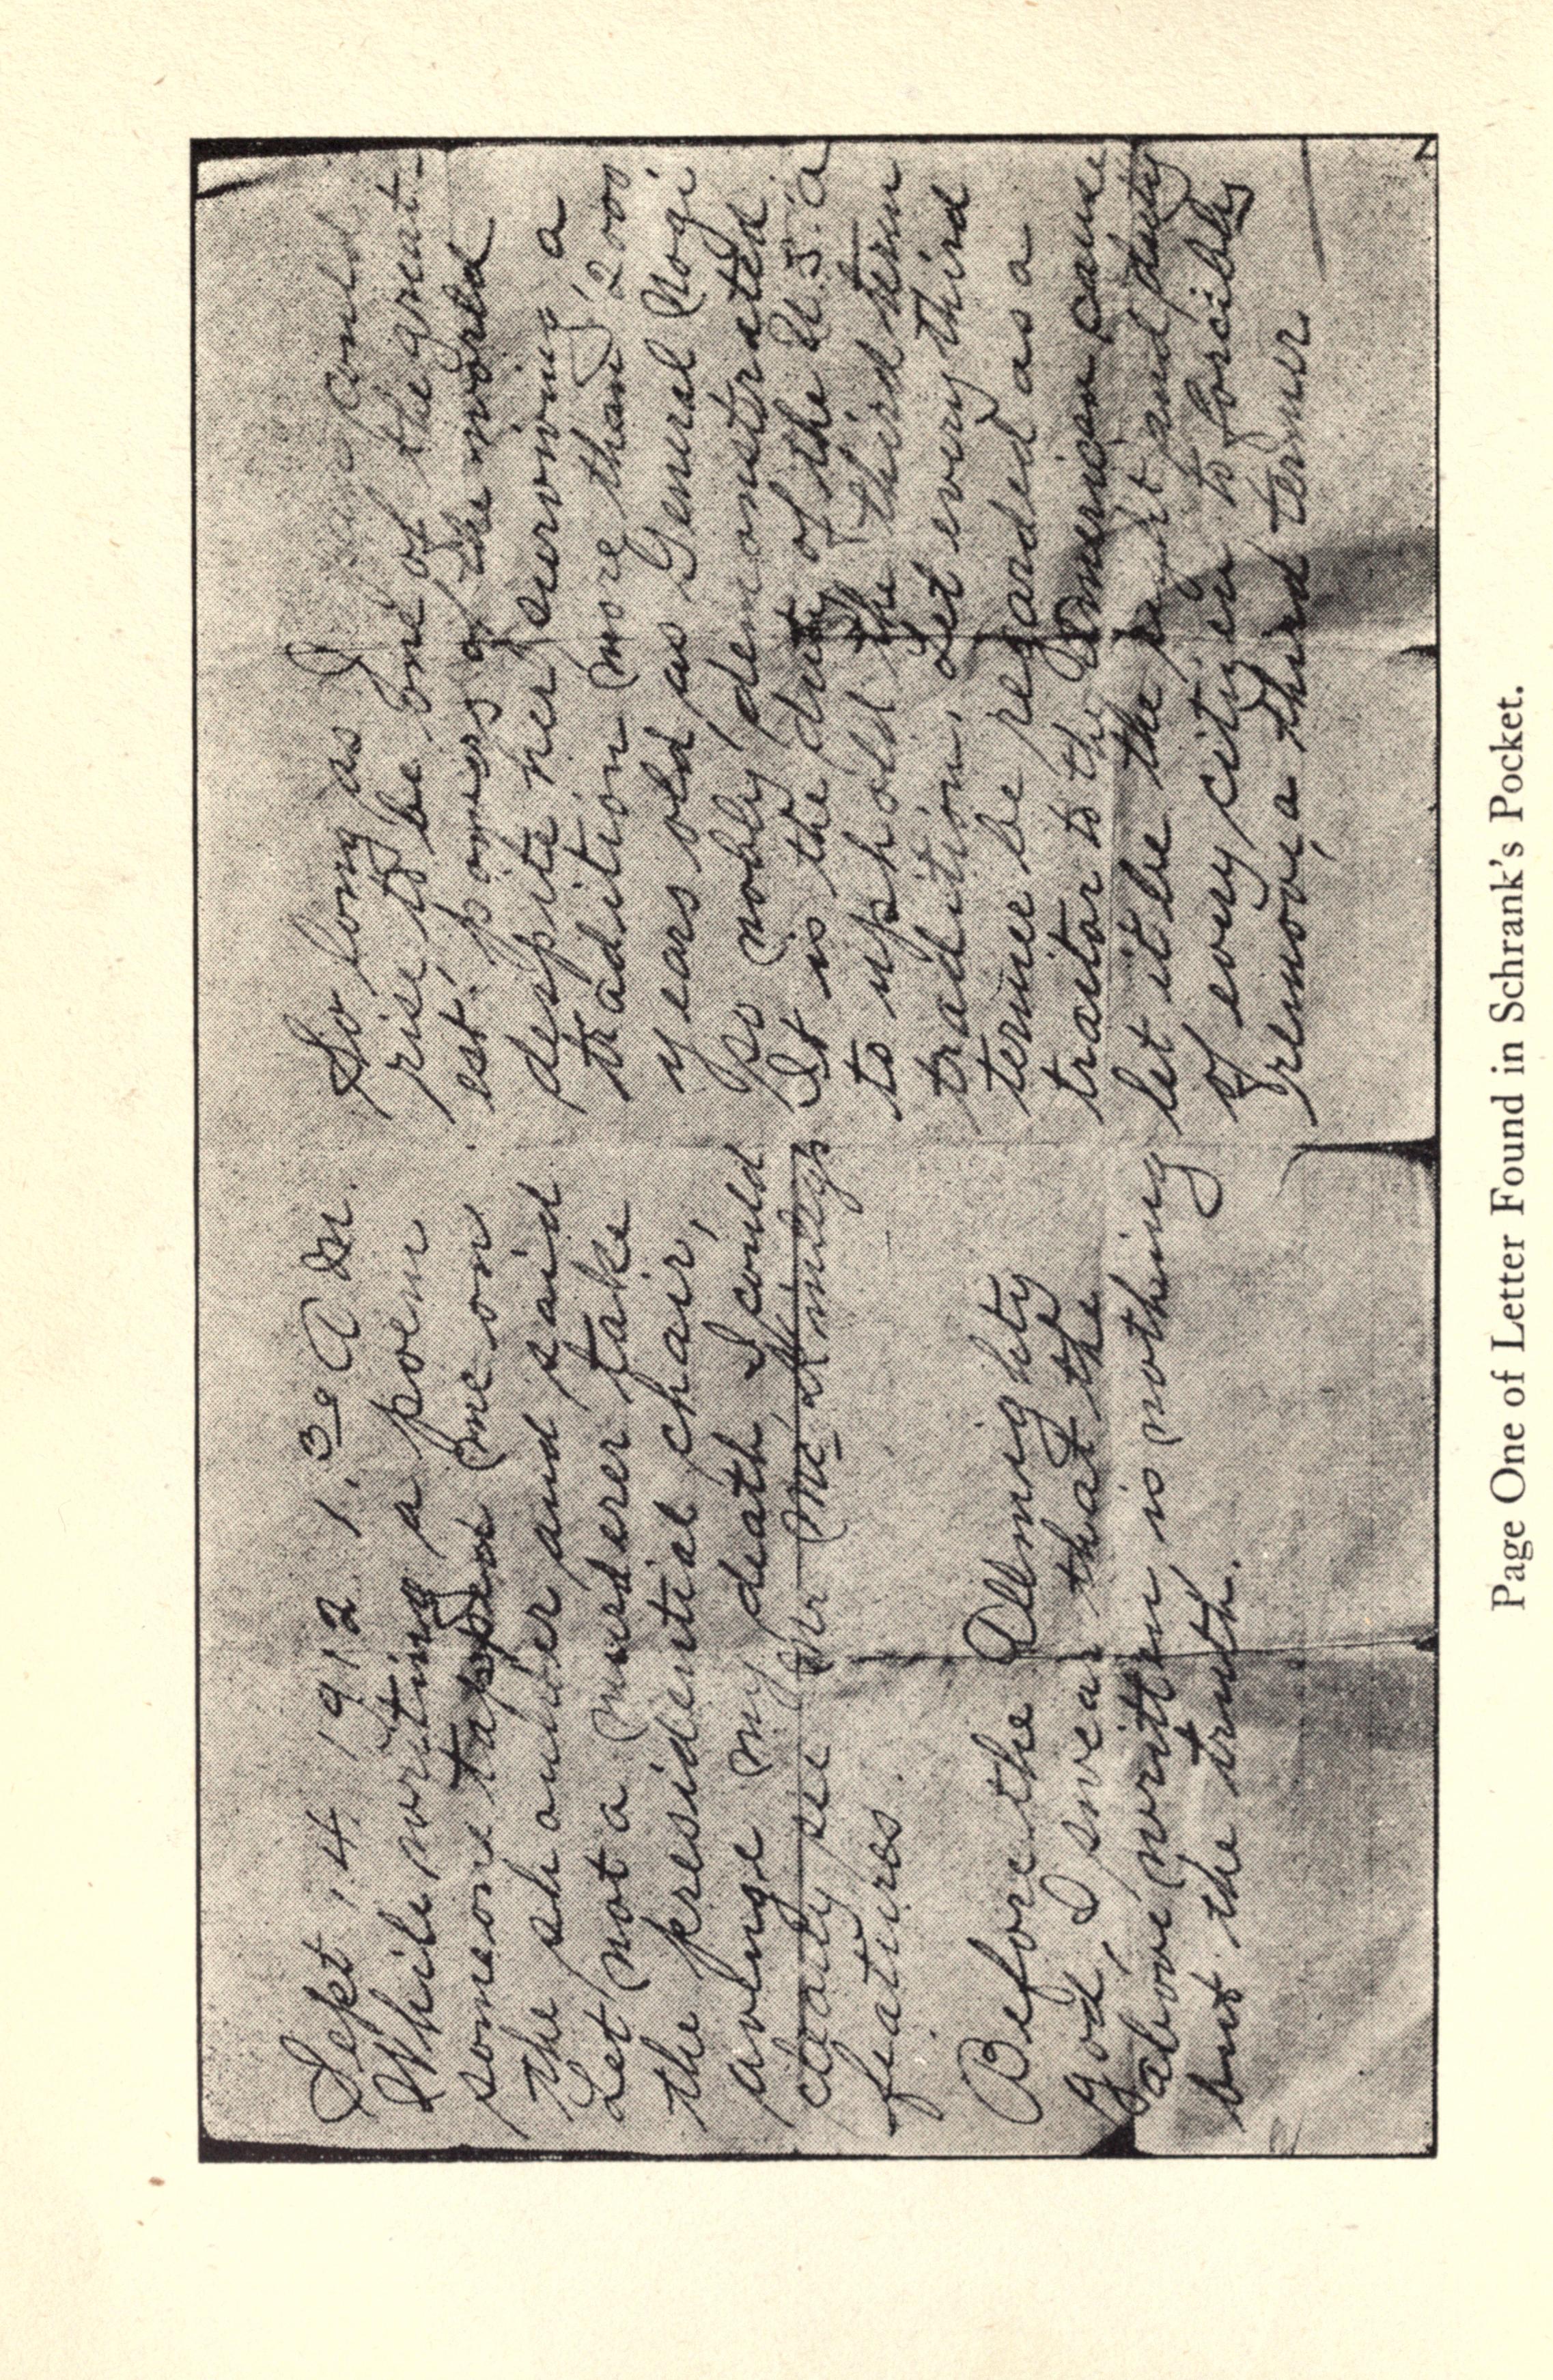 Sept. 14 1912 1.30 A M.
While writing a poem
someone tapped me on
the shoulder and said
Let not a murderer take
the presidential chair,
avenge my death. I could
clearly see Mr Mc Kinleys
features.
Before the Allmighty
God, I swear that the
above written is nothing
but the truth.
So long as Japan could
rise to be one of the great-
est powers of the world
despite her surviving a
tradition more than 2000
years old, as General Nogi
so nobly demonstrated
It is the duty of the U.S.A
to uphold the third term
tradition, Let every third
termer be regarded as a
traitor to the American cause
let it be the right and duty
of every citizen to forcibly
remove a third termer
Page One of Letter Found in Schrank's Pocket.